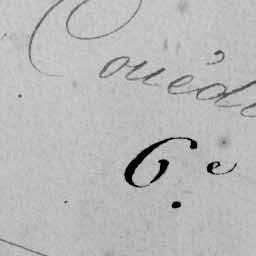 Couédi
6.e